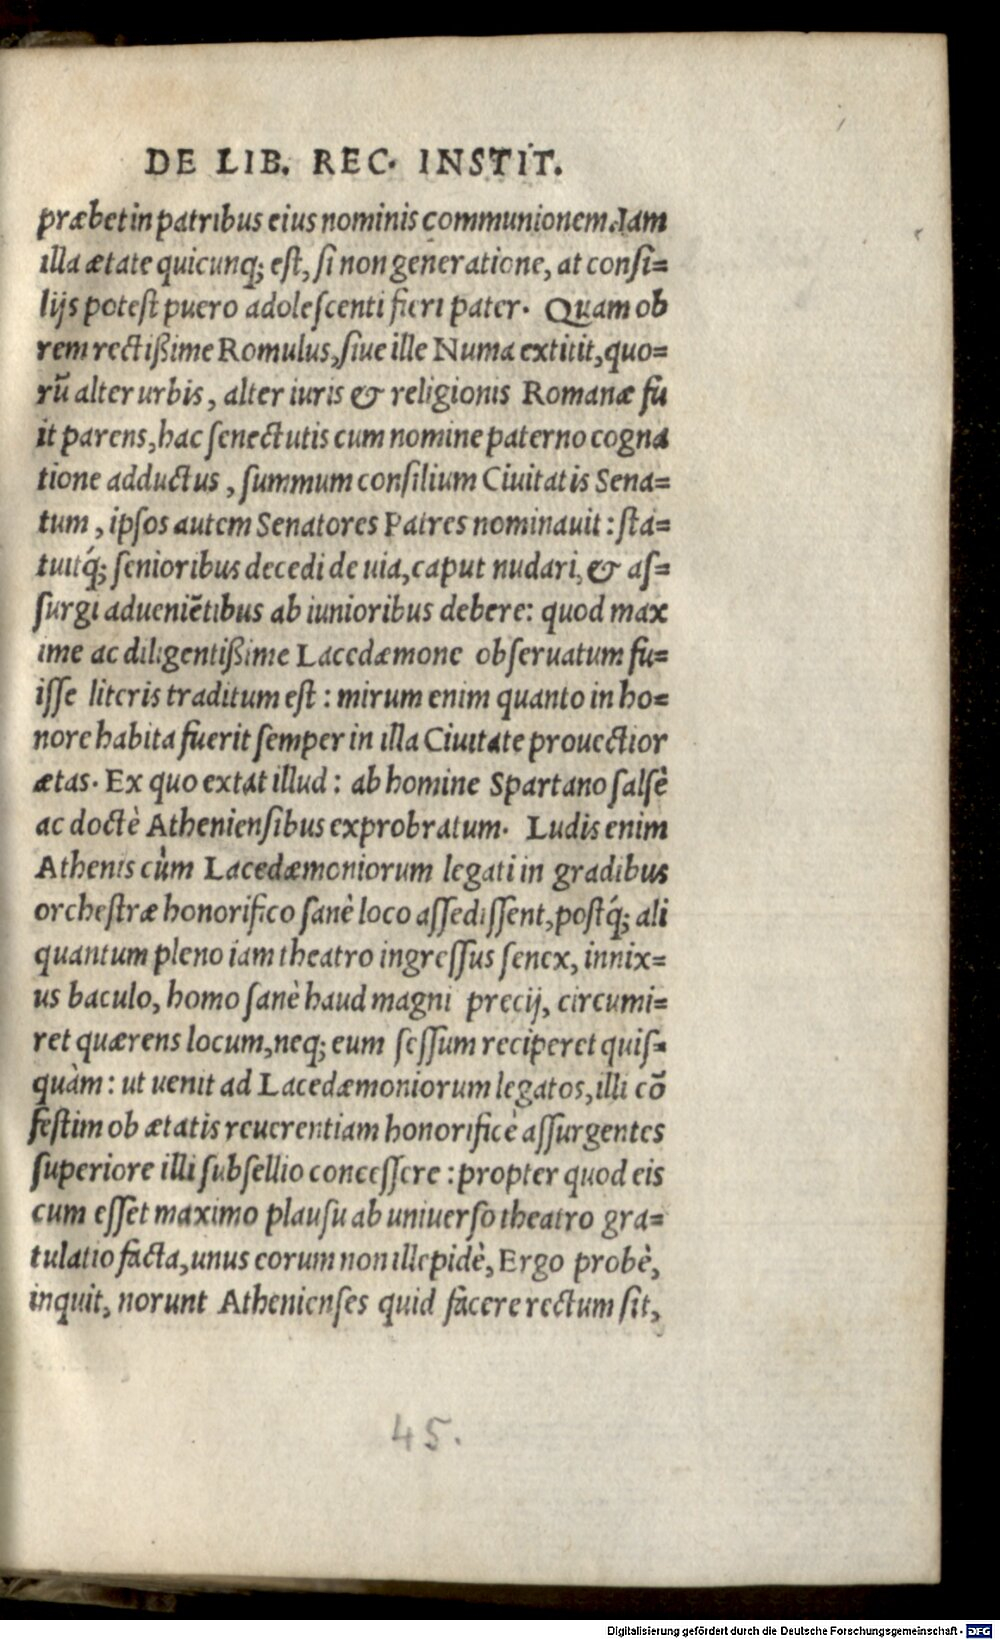 DE LIB. REC. INSTIT.
præbet in patribus eius nominis communionem. Iam
illa ætate quicunq; est, si non generatione, at consi=
lijs potest puero adolescenti fieri pater. Quam ob
rem rectißime Romulus, siue ille Numa extitit, quo=
rũ alter urbis, alter iuris & religionis Romanæ fu
it parens, hac senectutis cum nomine paterno cogna
tione adductus, summum consilium Ciuitatis Sena=
tum, ipsos autem Senatores Patres nominauit: sta=
tuitq́; senioribus decedi de uia, caput nudari, & as=
surgi adueniẽtibus ab iunioribus debere: quod max
ime ac diligentißime Lacedæmone obseruatum fu=
isse literis traditum est: mirum enim quanto in ho=
nore habita fuerit semper in illa Ciuitate prouectior
ætas. Ex quo extat illud: ab homine Spartano salsè
ac doctè Atheniensibus exprobratum. Ludis enim
Athenis cùm Lacedæmoniorum legati in gradibus
orchestræ honorifico sanè loco assedissent, postq́; ali
quantum pleno iam theatro ingressus senex, innix=
us baculo, homo sanè haud magni precij, circumi=
ret quærens locum, neq; eum sessum reciperet quis=
quàm: ut uenit ad Lacedæmoniorum legatos, illi cõ
festim ob ætatis reuerentiam honorificè assurgentes
superiore illi subsellio concessere: propter quod eis
cum esset maximo plausu ab uniuerso theatro gra=
tulatio facta, unus eorum non illepidè, Ergo probè,
inquit, norunt Athenienses quid facere rectum sit,
45.
Digitalisierung gefördert durch die Deutsche Forschungsgemeinschaft - DFG